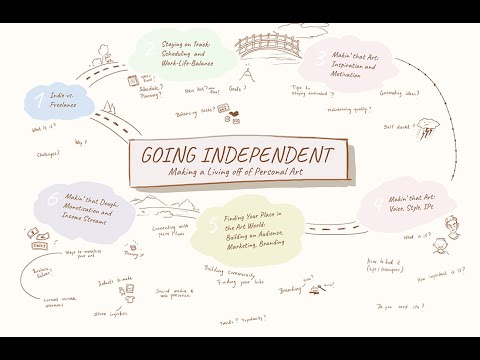 1
Indie vs.
Freelance
What is it?
Why?
Challenges?
2
Staying on Track:
Scheduling and
Work-Life-Balance
Schedule?
Planning?
Goals?
Balancing tasks?
3
Makin' that Art:
Inspiration and
Motivation
Tips to
staying motivated?
Generating ideas?
Maintaining quality?
Self doubt?
GOING INDEPENDENT
Making a Living off of Personal Art
4
Makin' that Art:
Voice, Style, IPs
What is it?
How to find it
How important is it?
Do you need IPs?
5
Finding Your Place in
the Art World:
Building an Audience,
Marketing, Branding
Connecting with
your Fans
Building Community
Finding your Tribe
Social media &
web presence
Branding
Trends? Popularity?
6
Makin' that Dough:
Monetisation and
Income Streams
Ways to monetise
your art
Pricing?
Products to make
Store Logistics